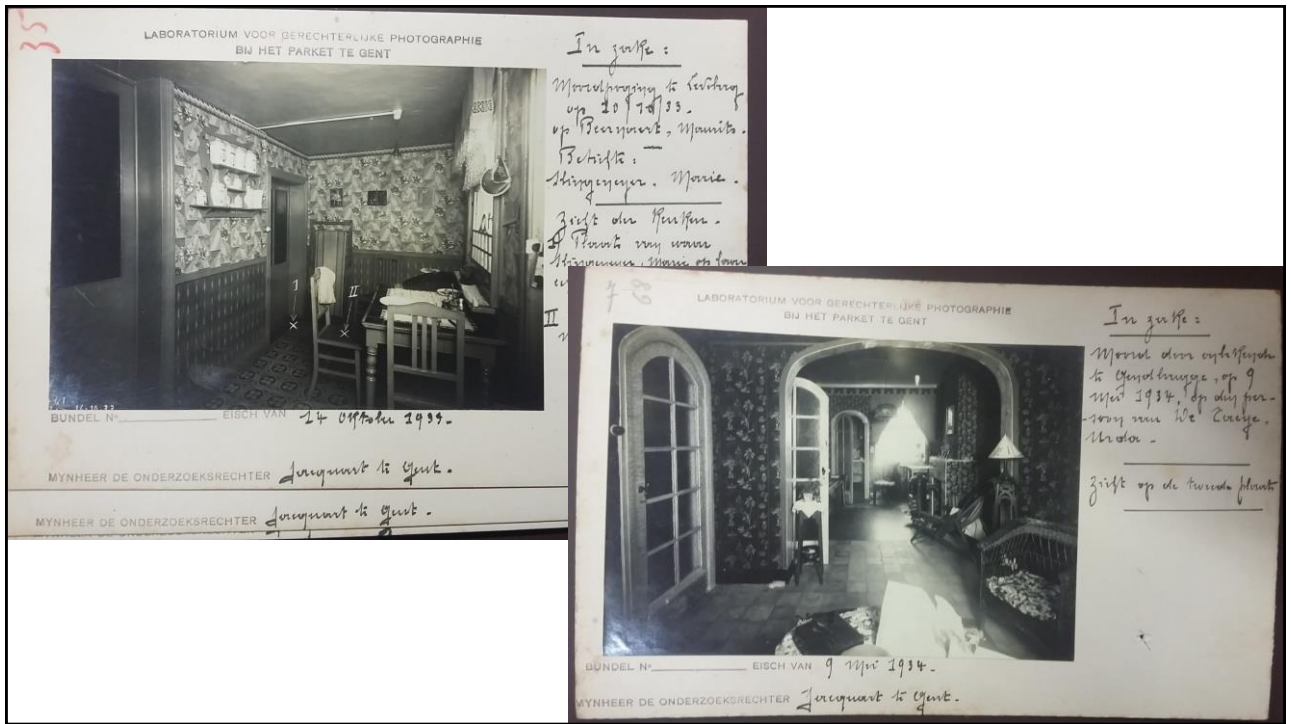 35
LABORATORIUM VOOR GERECHTERLIJKE PHOTOGRAPHIE
BIJ HET PARKET TE GENT
In zake :
Moordpoging te Ledeberg
op 10/10/33.
op Beernaert, Maurits.
Betichte :
Marie.
Zicht der Keuken.
I Plaats van waar
Marie op haar
II
I
II
BUNDEL Nº EISCH VAN 14 Oktober 1933.
MYNHEER DE ONDERZOEKSRECHTER Jacquart te Gent.
MYNHEER DE ONDERZOEKSRECHTER Jacquart te Gent.
LABORATORIUM VOOR GERECHTERLIJKE PHOTOGRAPHIE
BIJ HET PARKET TE GENT
In zake :
Moord door
te Gendbrugge, op 9
Mei 1934, op den per-
soon van De
Zicht op de tweede plaats
BUNDEL Nº EISCH VAN 9 Mei 1934.
MYNHEER DE ONDERZOEKSRECHTER Jacquart te Gent.